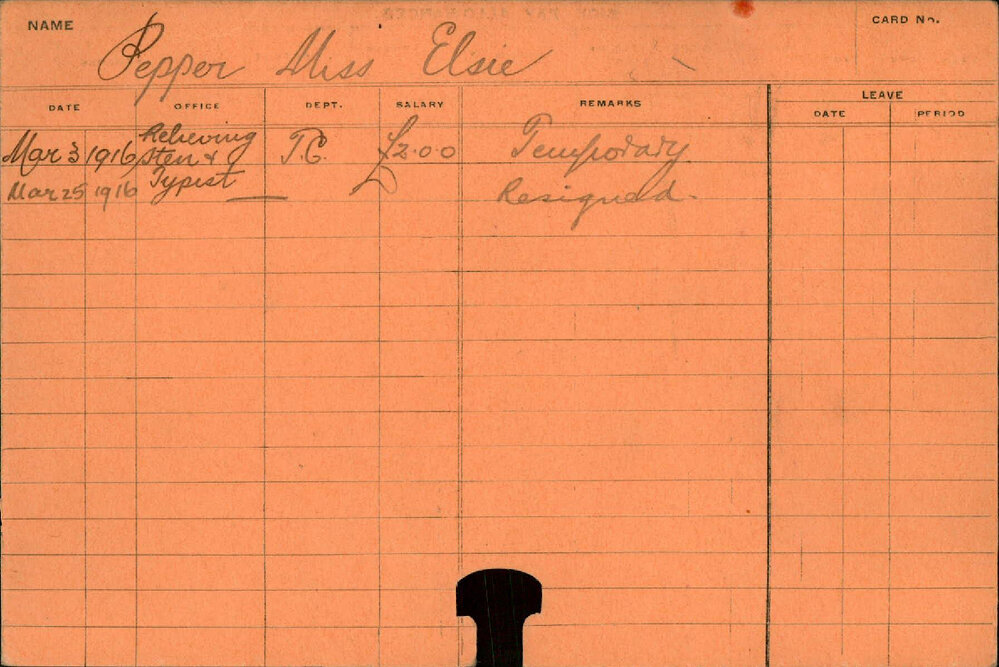 NAME
CARD No.
Pepper Miss Elsie
DATE OFFICE DEPT. SALARY REMARKS LEAVE
DATE PERIOD
Mar 3 1916 Relieving Sten & T.C. £2.0.0 Temporary
Mar 25 1916 Typist — Resigned.